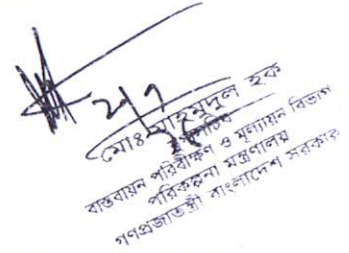 ২/৭
মোঃ মাহমুদুল হক
বাস্তবায়ন পরিবীক্ষণ ও মূল্যায়ন বিভাগ
পরিকল্পনা মন্ত্রণালয়
গণপ্রজাতন্ত্রী বাংলাদেশ সরকার